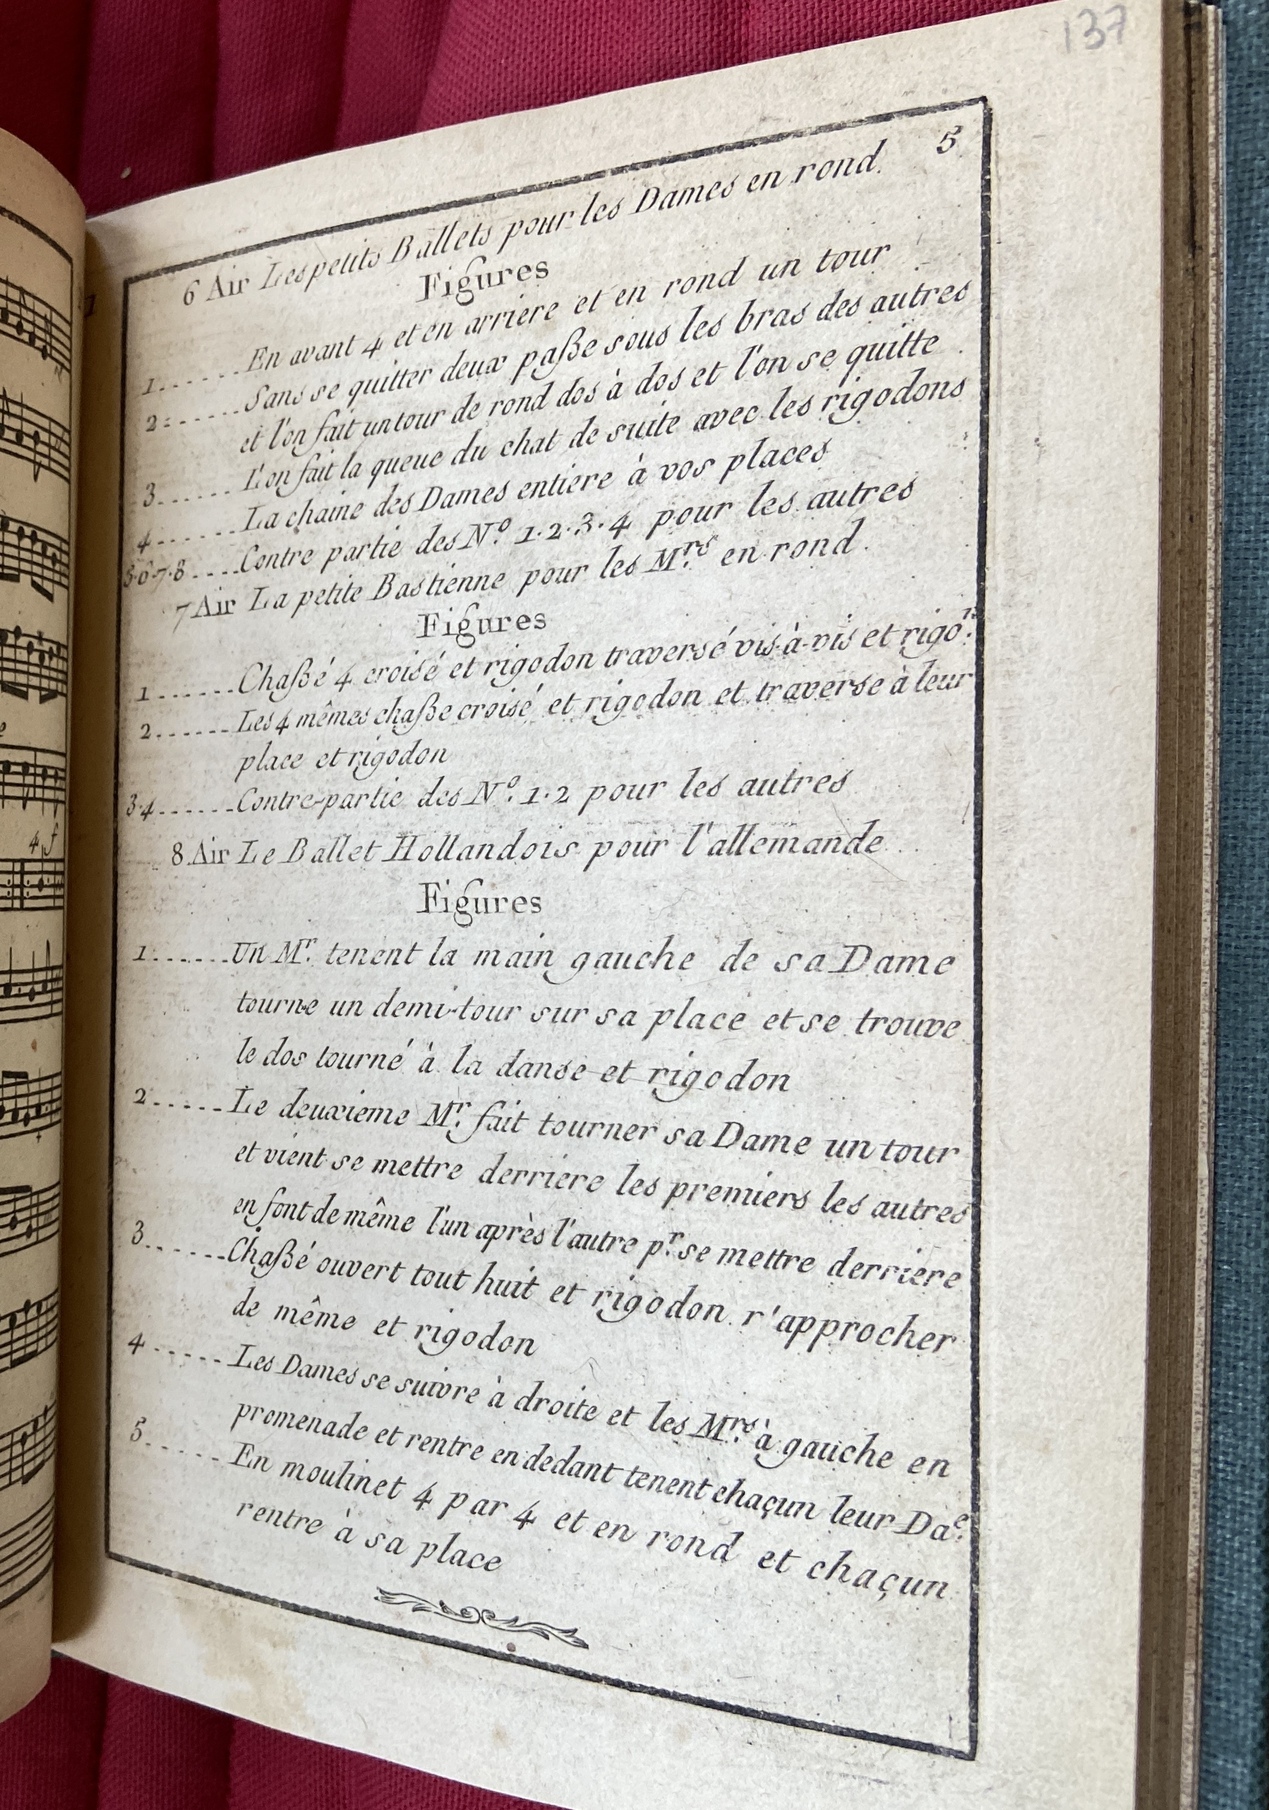 137
5
6 Air Les petits Ballets pour les Dames en rond.
Figures
1......En avant 4 et en arriere et en rond un tour
2......Sans se quitter deux paße sous les bras des autres
et l'on fait un tour de rond dos à dos et l'on se quitte
3......L'on fait la queue du chat de suite avec les rigodons
4......La chaine des Dames entiere à vos places
5·6·7·8....Contre partie des Nº. 1·2·3·4 pour les autres
7 Air La petite Bastienne pour les Mrs. en rond.
Figures
1......Chaßé 4 croisé et rigodon traversé vis-à-vis et rigon.
2......Les 4 mêmes chaße croisé et rigodon et traverse à leur
place et rigodon
3·4......Contre-partie des Nº. 1·2 pour les autres
8. Air Le Ballet Hollandois pour l'allemande
Figures
1......Un Mr. tenent la main gauche de sa Dame
tourne un demi-tour sur sa place et se trouve
le dos tourné à la danse et rigodon
2......Le deuxieme Mr. fait tourner sa Dame un tour
et vient se mettre derriere les premiers les autres
en font de même l'un après l'autre pr. se mettre derriere
3......Chaßé ouvert tout huit et rigodon r'approcher
de même et rigodon
4......Les Dames se suivre à droite et les Mrs. à gauche en
promenade et rentre en dedant tenent chaçun leur Dae.
5......En moulinet 4 par 4 et en rond et chaçun
rentre à sa place